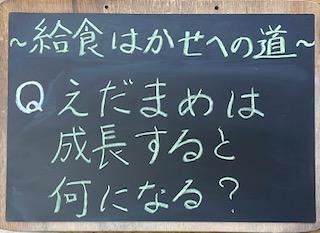 ～給食はかせへの道～
Q えだまめは
成長すると
何になる?